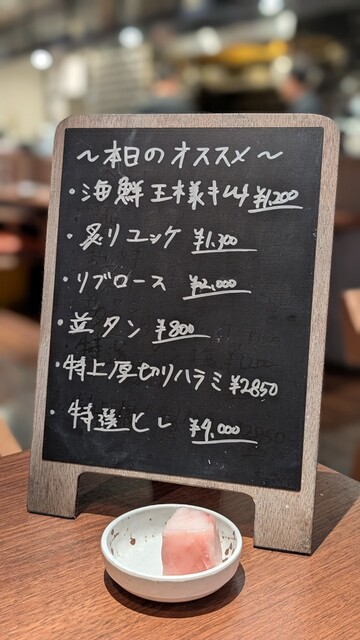 ～本日のオススメ～
・海鮮王様キムチ ¥1,200
・炙りユッケ ¥1,300
・リブロース ¥2,000
・並タン ¥800
・特上厚切りハラミ ¥2850
・特選ヒレ ¥9,000